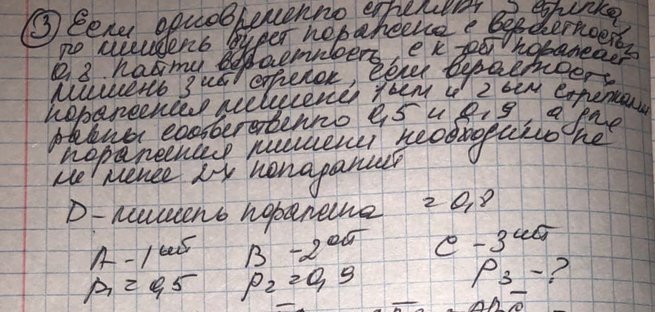 ③ Если одновременно стреляют 3 стрелка,
то мишень будет поражена с вероятностью
0,8. Найти вероятность, с к-ой поражает
мишень 3ий стрелок, если вероятности
поражения мишени 1ым и 2ым стрелками
равны соответственно 0,5 и 0,9, а для
поражения мишени необходимо не
не менее 2-х попаданий
D - мишень поражена = 0,8
A - 1ый B - 2ой C - 3ий
P₁ = 0,5 P₂ = 0,9 P₃ - ?